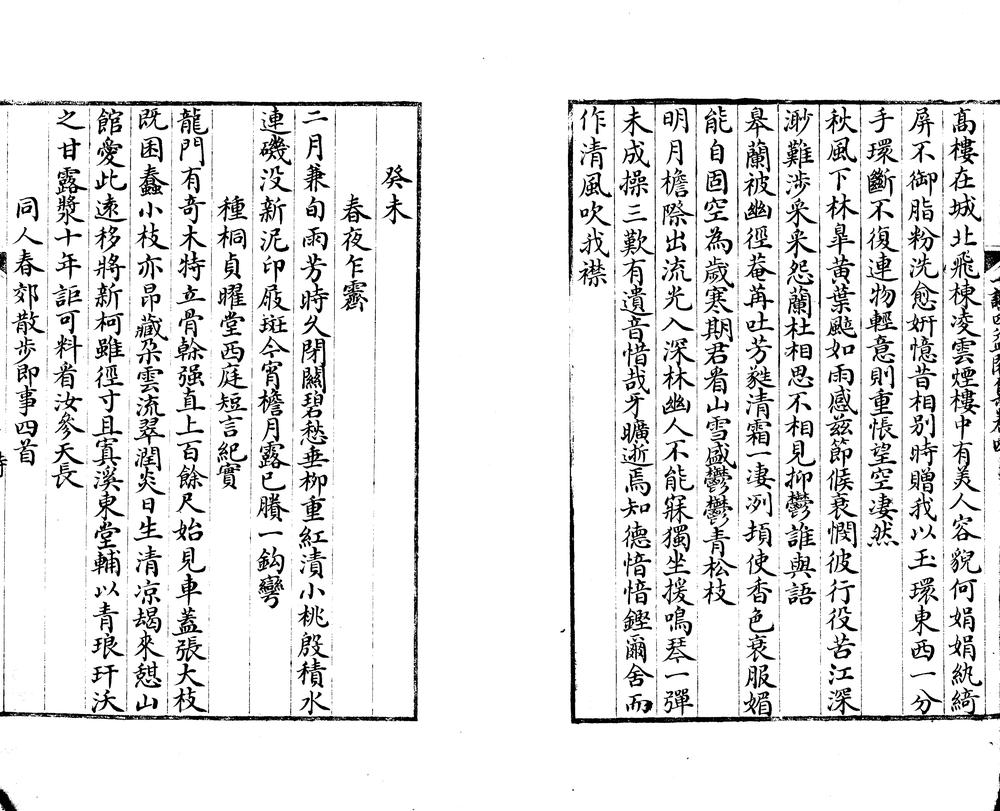 高樓在城北飛棟凌雲煙樓中有美人容貌何娟娟紈綺
屏不御脂粉洗愈妍憶昔相别時贈我以玉環東西一分
手環斷不復連物輕意則重悵望空凄然
秋風下林皐黄葉颭如雨感兹節候衰憫彼行役苦江深
渺難涉采采怨蘭杜相思不相見抑鬱誰與語
皋蘭被幽徑菴苒吐芳蕤清霜一凄冽頓使香色衰服媚
能自固空為歲寒期君看山雪盛鬱鬱青松枝
明月檐際出流光入深林幽人不能寐獨坐援鳴琴一彈
未成操三歎有遺音惜哉牙曠逝焉知德愔愔鏗爾舍而
作清風吹我襟
癸未
春夜乍霽
二月兼旬雨芳時久閉關碧愁垂柳重紅漬小桃殷積水
連磯没新泥印屐斑今宵檐月露已賸一鈎彎
種桐貞曜堂西庭短言紀實
龍門有奇木特立骨榦强直上百餘尺始見車蓋張大枝
既困蠡小枝亦昂藏朶雲流翠潤炎日生清凉朅來憇山
館愛此遠移將新柯雖徑寸且寘溪東堂輔以青琅玕沃
之甘露漿十年詎可料看汝參天長
同人春郊散步即事四首